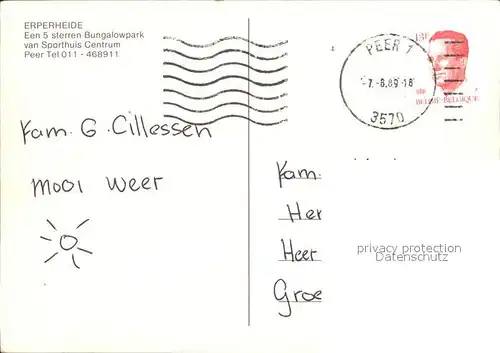 ERPERHEIDE
Een 5 sterren Bungalowpark
van Sporthuis Centrum
Peer Tel 011 - 468911
PEER 1
-7.-8.89-18
3570
13F
BELGIE-BELGIQUE
Kam. G. Cillessen
mooi weer
Kam.
Her
Heer
Groe
privacy protection
Datenschutz